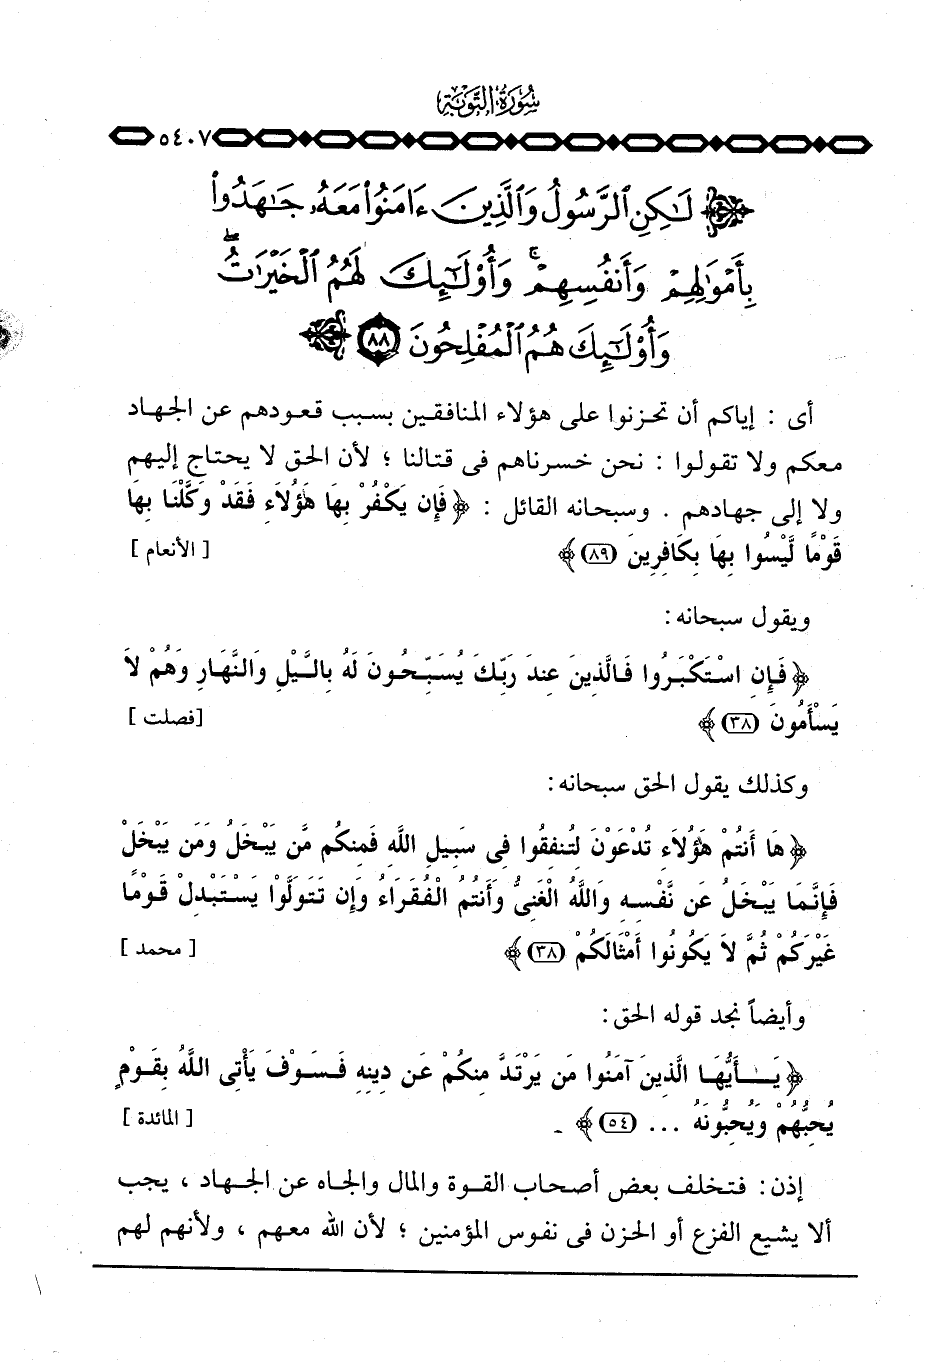 سُورَةُ التَّوْبَةِ
٥٤٠٧
لَٰكِنِ ٱلرَّسُولُ وَٱلَّذِينَ ءَامَنُوا۟ مَعَهُۥ جَٰهَدُوا۟
بِأَمْوَٰلِهِمْ وَأَنفُسِهِمْ ۚ وَأُو۟لَٰٓئِكَ لَهُمُ ٱلْخَيْرَٰتُ ۖ
وَأُو۟لَٰٓئِكَ هُمُ ٱلْمُفْلِحُونَ ٨٨
أى : إياكم أن تحزنوا على هؤلاء المنافقين بسبب قعودهم عن الجهاد
معكم ولا تقولوا : نحن خسرناهم فى قتالنا ؛ لأن الحق لا يحتاج إليهم
ولا إلى جهادهم . وسبحانه القائل : ﴿ فَإِن يَكْفُرْ بِهَا هَؤُلَاءِ فَقَدْ وَكَّلْنَا بِهَا
قَوْمًا لَّيْسُوا بِهَا بِكَافِرِينَ (٨٩) ﴾ [ الأنعام ]
ويقول سبحانه:
﴿ فَإِنِ اسْتَكْبَرُوا فَالَّذِينَ عِندَ رَبِّكَ يُسَبِّحُونَ لَهُ بِاللَّيْلِ وَالنَّهَارِ وَهُمْ لَا
يَسْأَمُونَ (٣٨) ﴾ [فصلت ]
وكذلك يقول الحق سبحانه:
﴿ هَا أَنتُمْ هَؤُلَاءِ تُدْعَوْنَ لِتُنفِقُوا فِى سَبِيلِ اللَّهِ فَمِنكُم مَّن يَبْخَلُ وَمَن يَبْخَلْ
فَإِنَّمَا يَبْخَلُ عَن نَّفْسِهِ وَاللَّهُ الْغَنِىُّ وَأَنتُمُ الْفُقَرَاءُ وَإِن تَتَوَلَّوْا يَسْتَبْدِلْ قَوْمًا
غَيْرَكُمْ ثُمَّ لَا يَكُونُوا أَمْثَالَكُمْ (٣٨) ﴾ [ محمد ]
وأيضاً نجد قوله الحق:
﴿ يَـٰأَيُّهَا الَّذِينَ آمَنُوا مَن يَرْتَدَّ مِنكُمْ عَن دِينِهِ فَسَوْفَ يَأْتِى اللَّهُ بِقَوْمٍ
يُحِبُّهُمْ وَيُحِبُّونَهُ ... (٥٤) ﴾ . [ المائدة ]
إذن: فتخلف بعض أصحاب القوة والمال والجاه عن الجهاد ، يجب
ألا يشيع الفزع أو الحزن فى نفوس المؤمنين ؛ لأن الله معهم ، ولأنهم لهم